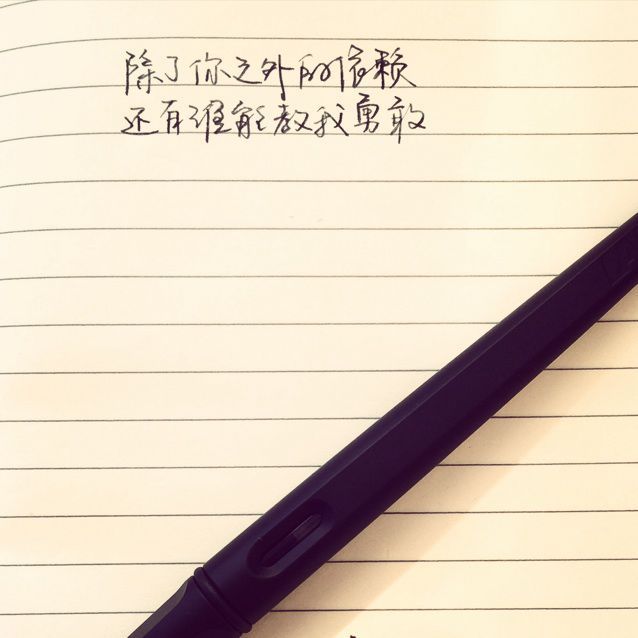 除了你之外的依赖
还有谁能教我勇敢